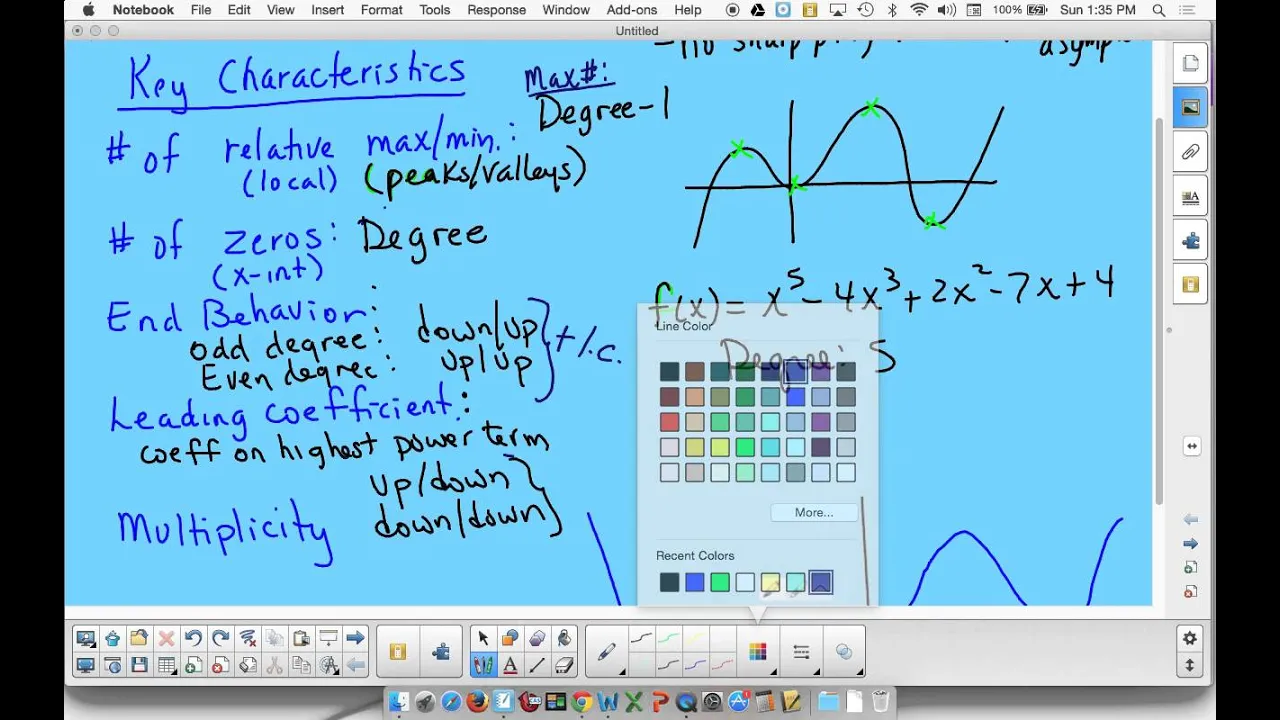 Notebook File Edit View Insert Format Tools Response Window Add-ons Help 100% Sun 1:35 PM
Untitled
-no sharp
asymp
Key Characteristics
Max#:
Degree-1
# of relative max/min.:
(local) (peaks/valleys)
# of zeros: Degree
(x-int)
f(x) = x⁵ - 4x³ + 2x² - 7x + 4
Degree: 5
End Behavior:
odd degree: down/up
Even degree: up/up
+ l.c.
Leading coefficient:
coeff on highest power term
up/down
down/down
Multiplicity
Line Color
More...
Recent Colors